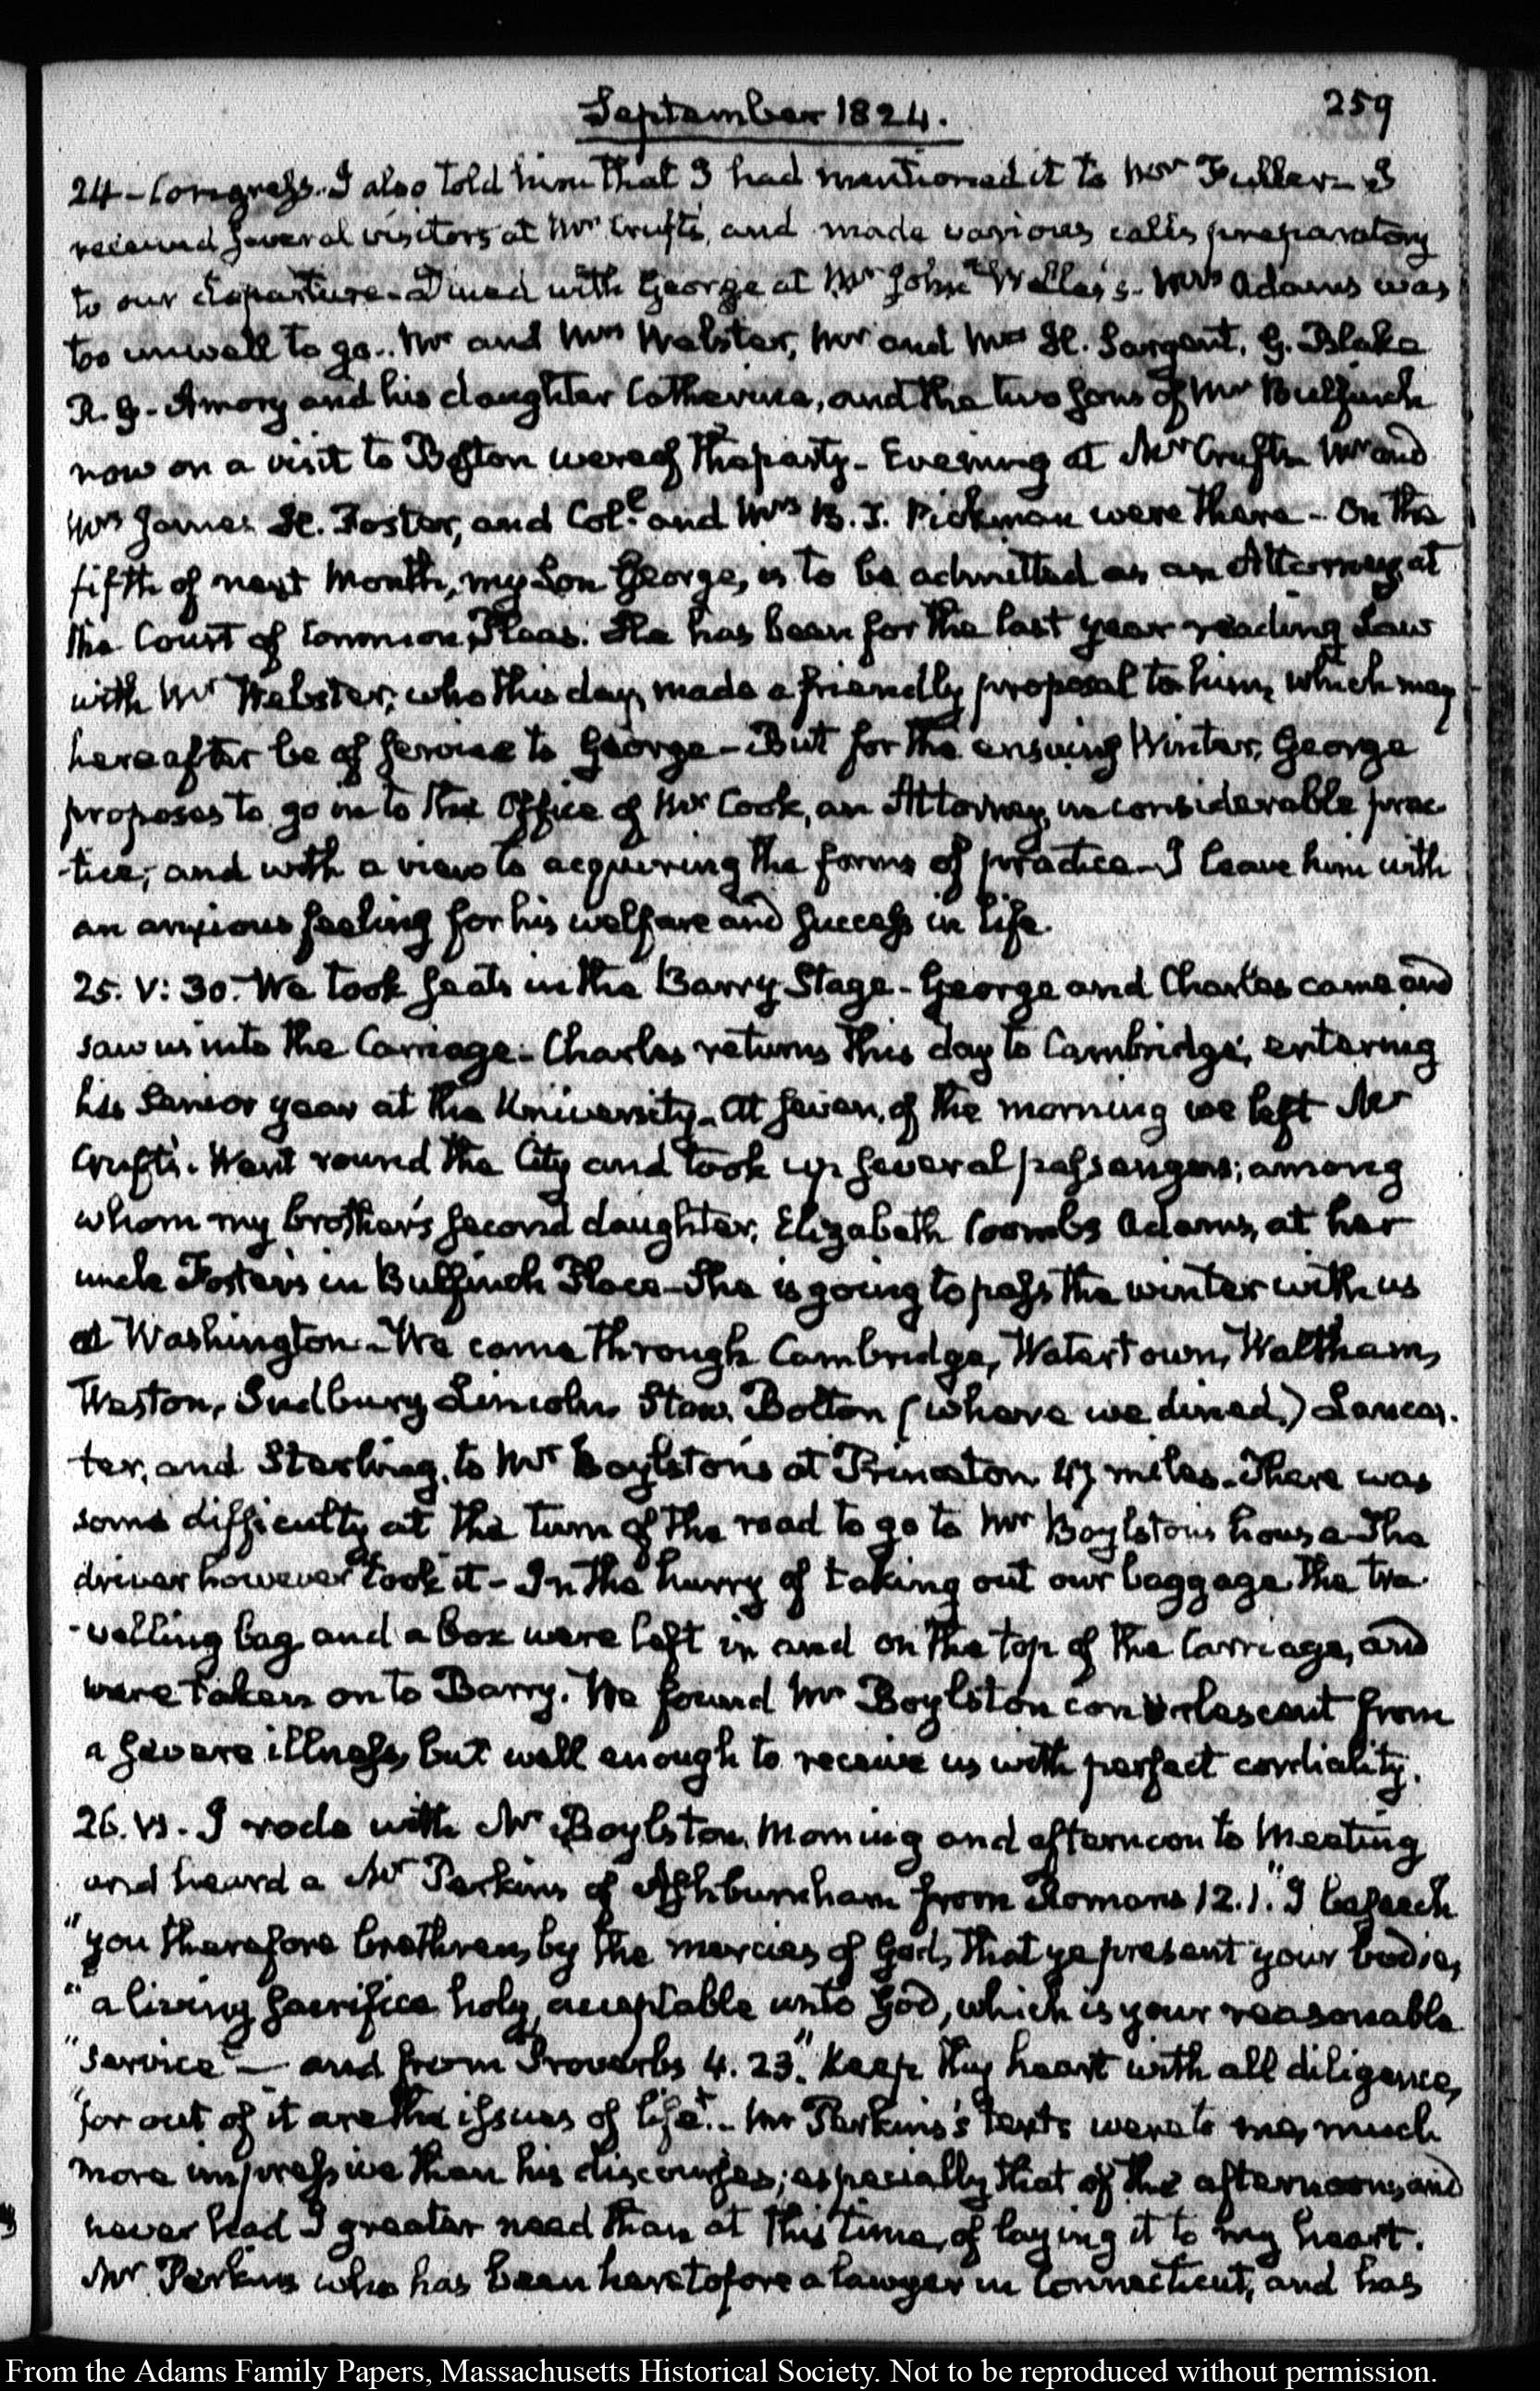 September 1824.
259
24 - Congress. I also told him that I had mentioned it to Mr Fuller - I
received several visitors at Mr Cruft's, and made various calls preparatory
to our departure - Dined with George at Mr John Welles's - Mrs Adams was
too unwell to go.. Mr and Mrs Webster, Mr and Mrs H. Sargent, G. Blake
R. G. Amory and his daughter Catherine, and the two Sons of Mr Bulfinch
now on a visit to Boston were of the party - Evening at Mr Cruft's Mr and
Mrs James H. Foster, and Col. and Mrs B. T. Pickman were there - On the
fifth of next Month, my Son George, is to be admitted as an Attorney at
the Court of Common Pleas. He has been for the last year reading Law
with Mr Webster, who this day, made a friendly proposal to him, which may
hereafter be of service to George - But for the ensuing Winter, George
proposes to go into the Office of Mr Cook, an Attorney, in considerable prac-
-tice, and with a view to acquiring the forms of practice - I leave him with
an anxious feeling for his welfare and success in life.
25. V: 30. We took seats in the Barry Stage - George and Charles came and
saw us into the Carriage - Charles returns this day to Cambridge, entering
his Senior year at the University - At seven, of the morning we left Mr
Cruft's. Went round the City and took up several passengers; among
whom my brother's second daughter, Elizabeth Coombs Adams, at her
uncle Foster's in Bulfinch Place - She is going to pass the winter with us
at Washington - We came through Cambridge, Watertown, Waltham,
Weston, Sudbury Lincoln, Stow, Bolton (where we dined,) Lancas-
ter, and Sterling, to Mr Boylston's at Princeton 47 miles - There was
some difficulty at the turn of the road to go to Mr Boylston's house - The
driver however took it - In the hurry of taking out our baggage the tra-
-velling bag and a box were left in and on the top of the Carriage, and
were taken on to Barry. We found Mr Boylston convalescent from
a severe illness, but well enough to receive us with perfect cordiality.
26. VI. I rode with Mr Boylston, Morning and afternoon to Meeting
and heard a Mr Perkins of Ashburnham from Romans 12.1. "I beseech
"you therefore brethren, by the mercies of God, that ye present your bodies,
"a living sacrifice holy, acceptable unto God, which is your reasonable
"service" - and from Proverbs 4. 23. "Keep thy heart with all diligence,
"for out of it are the issues of life." - Mr Perkins's texts were to me, much
more impressive than his discourses; especially that of the afternoon, and
never had I greater need than at this time, of laying it to my heart.
Mr Perkins who has been heretofore a lawyer in Connecticut, and has
From the Adams Family Papers, Massachusetts Historical Society. Not to be reproduced without permission.